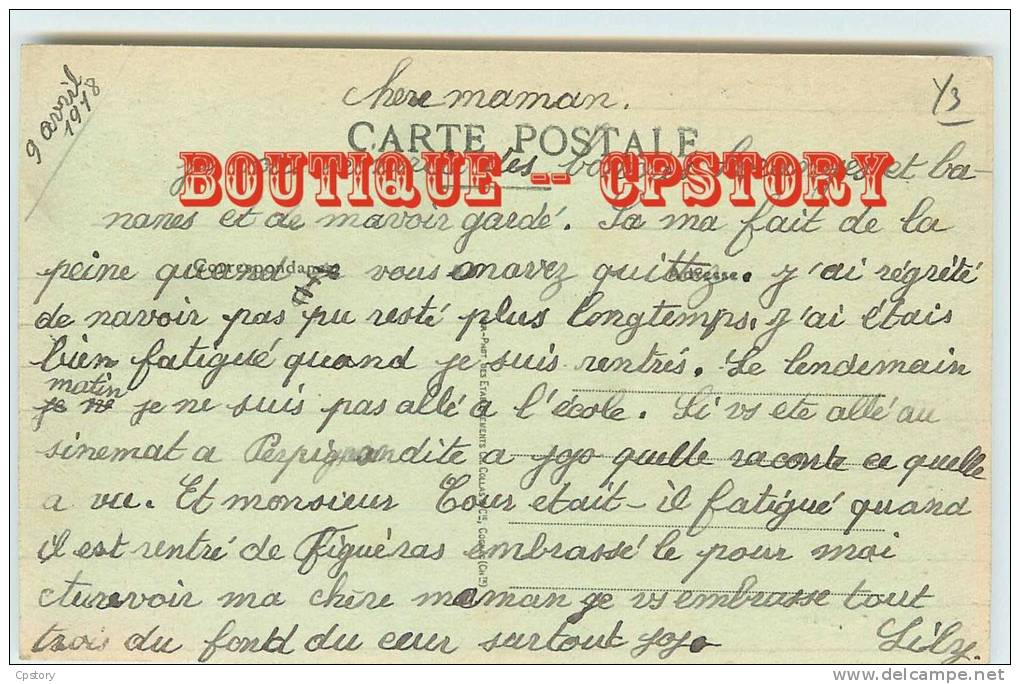 9 avril
1918
Y3
chere maman.
CARTE POSTALE
BOUTIQUE -- CPSTORY
les et ba-
nanes et de mavoir gardé. Sa ma fait de la
peine quand vous mavez quittez. j'ai régrété
Correspondance
Adresse
de navoir pas pu resté plus longtemps. j'ai étais
bien fatigué quand je suis rentrés. Le lendemain
matin
je ne je ne suis pas allé a l'école. Si vs ete allé au
sinemat a Perpignan dite a jojo quelle raconte ce quelle
a vu. Et monsieur Tour etait-il fatigué quand
il est rentré de Figuéras embrassé le pour moi
aurevoir ma chère maman je vs embrasse tout
trois du fond du cœur surtout jojo
Lily.
PHOT. DES ETABLISSEMENTS DE COLLAS & CIE, COGNAC (CHTE)
Cpstory
www.delcampe.net